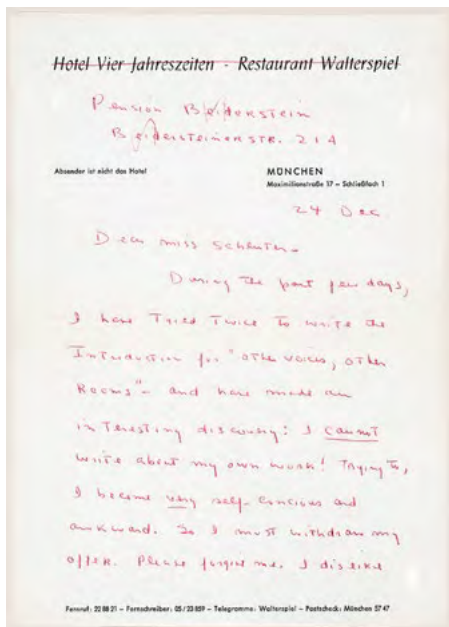 Hotel Vier Jahreszeiten · Restaurant Walterspiel
Pension Beiderstein
Beidersteinerstr. 21A
Absender ist nicht das Hotel
MÜNCHEN
Maximilianstraße 17 – Schließfach 1
24 Dec
Dear Miss
During the past few days,
I have Tried Twice to write the
Introduction for "Other Voices, Other
Rooms" – and have made an
interesting discovery: I cannot
write about my own work! Trying to,
I become very self-concious and
awkward. So I must withdraw my
offer. Please forgive me. I dislike
Fernruf: 22 88 21 – Fernschreiber: 05/23 859 – Telegramme: Walterspiel – Postscheck: München 57 47